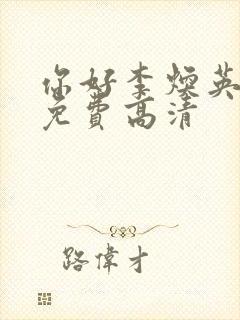 你好李焕英
免费高清
路偉才